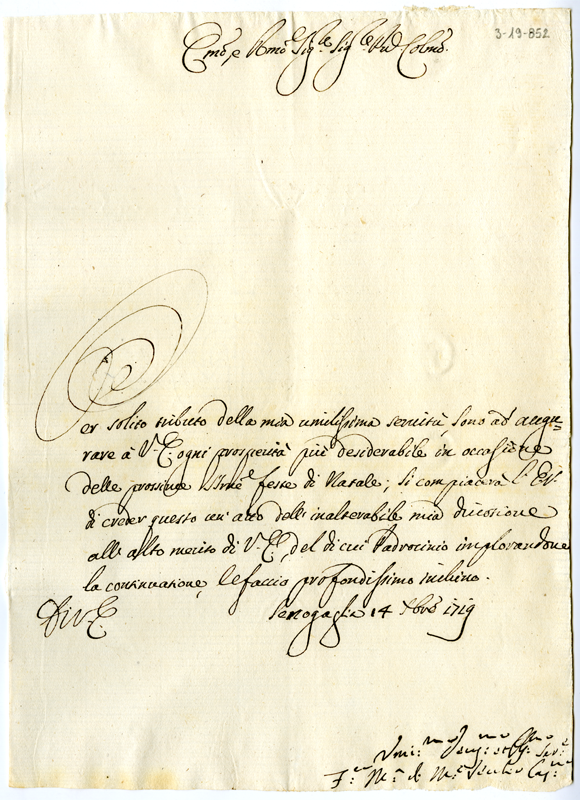 3-19-852
Emo, e Rmo Sigre Sigre Prõ Colmo.
Per solito tributo della mia umilissima servitù, sono ad augu=
rare à V. E. ogni prosperità più desiderabile in occasione
delle prossime SSme feste di Natale; Si compiacerà l'E. V.
di creder questo un' atto dell' inalterabile mia divozione
all' alto merito di V. E., del di cui Padrocinio implorandone
la continuazione, le faccio profondissimo inchino.
Di V. E. Senogaglia 14 Xbre 1719